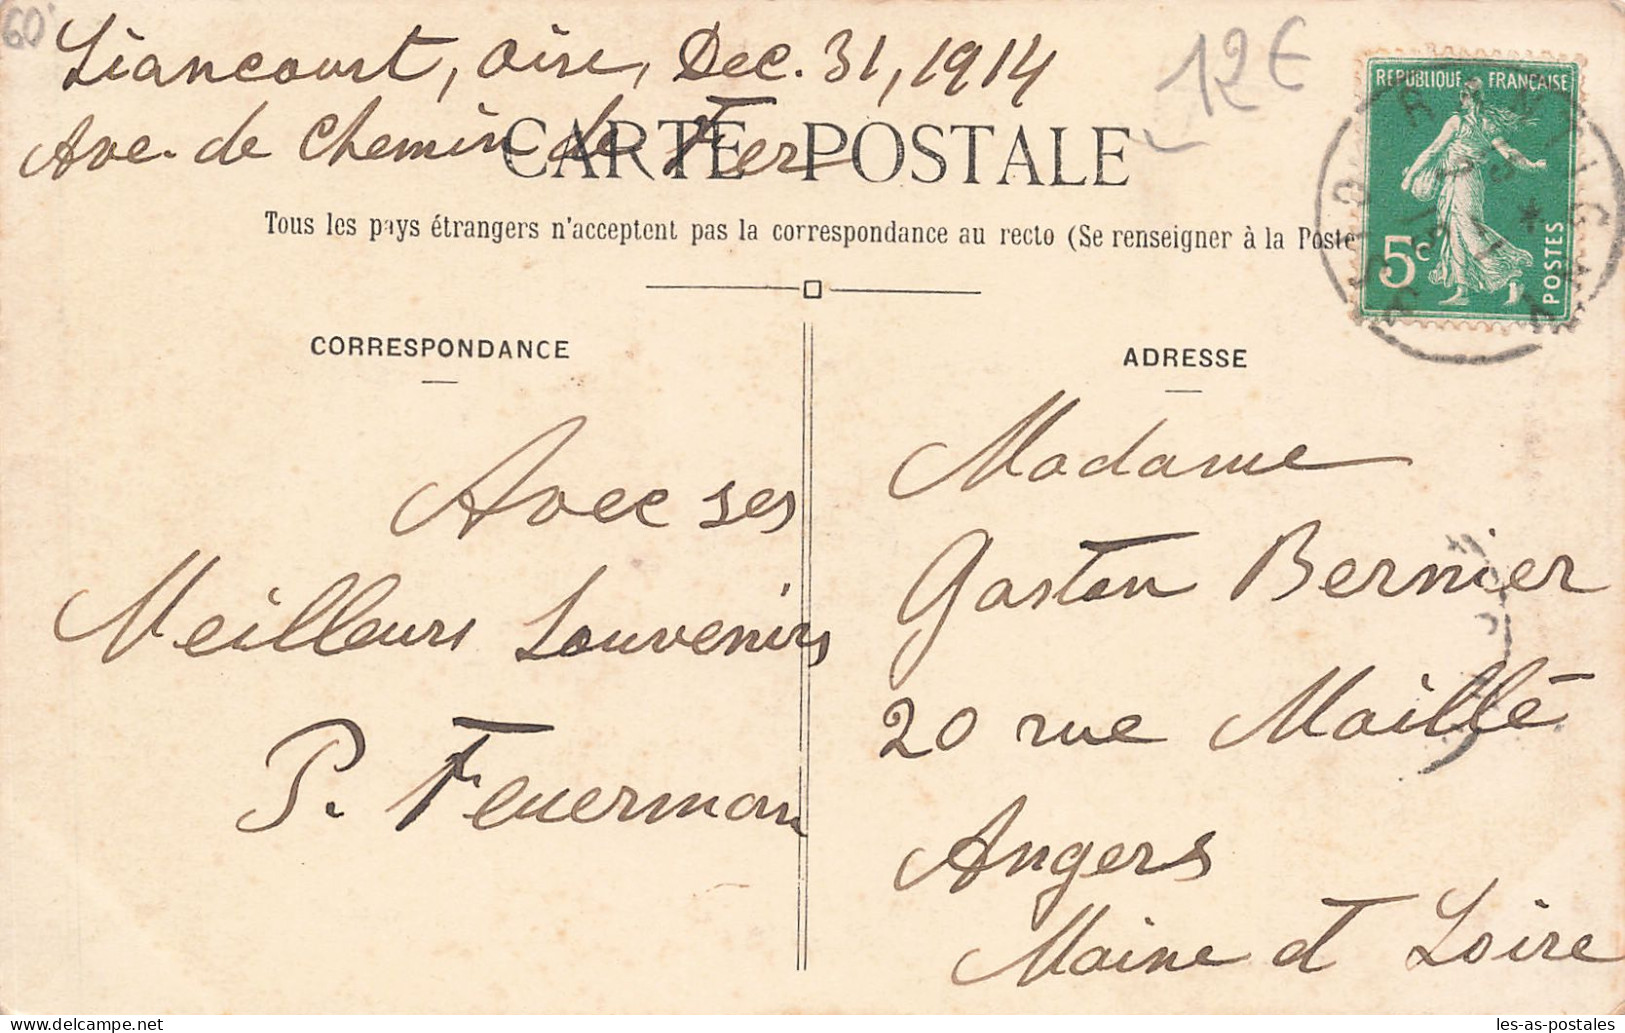 60
Liancourt, Oise, Dec. 31, 1914
12€
Ave. de Chemin de Fer
CARTE POSTALE
Tous les pays étrangers n'acceptent pas la correspondance au recto (Se renseigner à la Poste
REPUBLIQUE FRANÇAISE
5c
POSTES
CORRESPONDANCE
Avec ses
Meilleurs Souvenirs
P. Feuerman
ADRESSE
Madame
Gaston Bernier
20 rue Maillé
Angers
Maine et Loire
les-as-postales